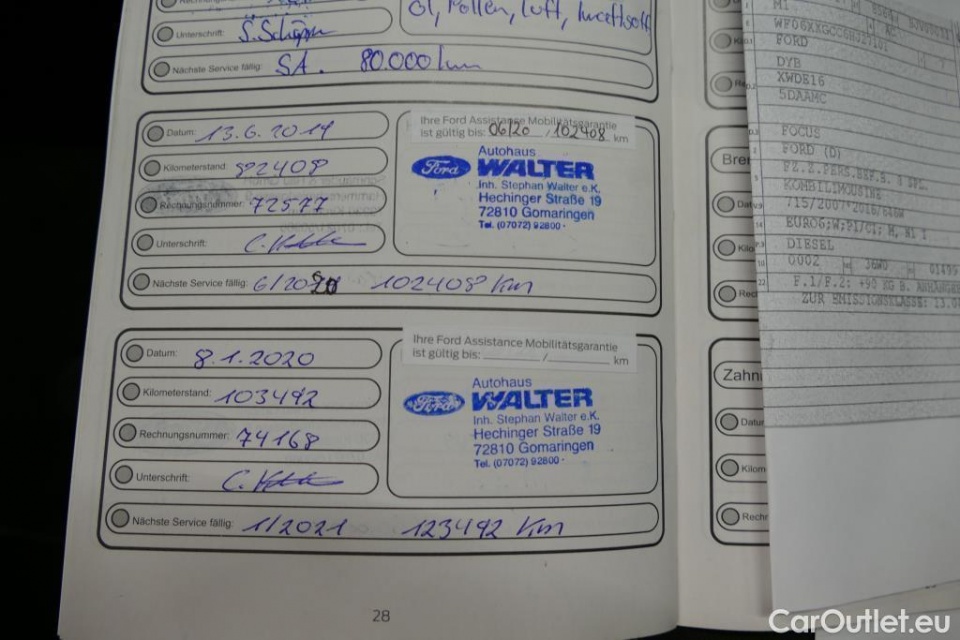 Öl, Pollen, Luft,
Unterschrift:
Nächste Service fällig: SA. 80.000 km
Datum: 13.6.2019
Kilometerstand: 82408
Rechnungsnummer: 72577
Unterschrift:
Nächste Service fällig: 6/2020 102408 km
Ihre Ford Assistance Mobilitätsgarantie
ist gültig bis: 06/20 / 102408 km
Autohaus
Ford WALTER
Inh. Stephan Walter e.K.
Hechinger Straße 19
72810 Gomaringen
Tel. (07072) 92800-
Datum: 8.1.2020
Kilometerstand: 103492
Rechnungsnummer: 74168
Unterschrift:
Nächste Service fällig: 1/2021 123492 Km
Ihre Ford Assistance Mobilitätsgarantie
ist gültig bis: / km
Autohaus
Ford WALTER
Inh. Stephan Walter e.K.
Hechinger Straße 19
72810 Gomaringen
Tel. (07072) 92800-
28
Bre
Datu
Kilo
Rech
Zahn
Datu
Kilom
Rechr
M1
FORD
DYB
XWDE16
5DAAMC
FOCUS
FORD (D)
FZ.Z.PERS.BEF.B. 8 SPL.
KOMBILIMOUSINE
715/2007*2016/646W
DIESEL
0002 01499
CarOutlet.eu